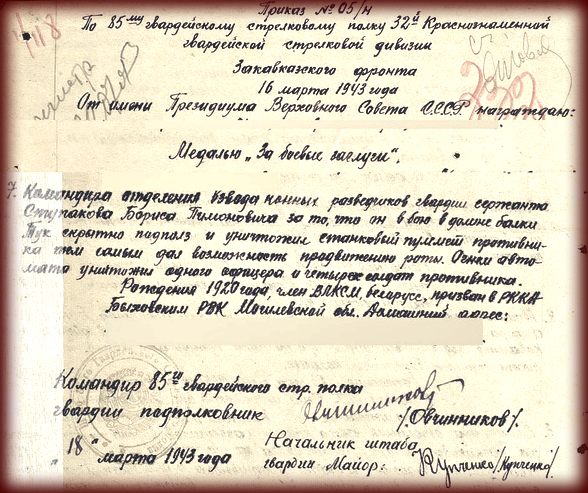 Приказ № 05/н
По 85му гвардейскому стрелковому полку 32й Краснознаменной
гвардейской стрелковой дивизии
Закавказского фронта
16 марта 1943 года
От имени Президиума Верховного Совета СССР награждаю:
Медалью „За боевые заслуги“.
7. Командира отделения взвода конных разведчиков гвардии сержанта
Ступакова Бориса Пимоновича за то, что он в бою в долине балки
Тук скрытно подполз и уничтожил станковый пулемет противни-
ка тем самым дал возможность продвижению роты. Огнем авто-
мата уничтожил одного офицера и четырех солдат противника.
Рождения 1920 года, член ВЛКСМ, беларусс, призван в РККА
Быховским РВК Могилевской обл. Домашний адрес:
Командир 85го гвардейского стр. полка
гвардии подполковник /Овчинников/.
„18“ марта 1943 года
Начальник штаба
гвардии Майор: Купченко /Купченко/